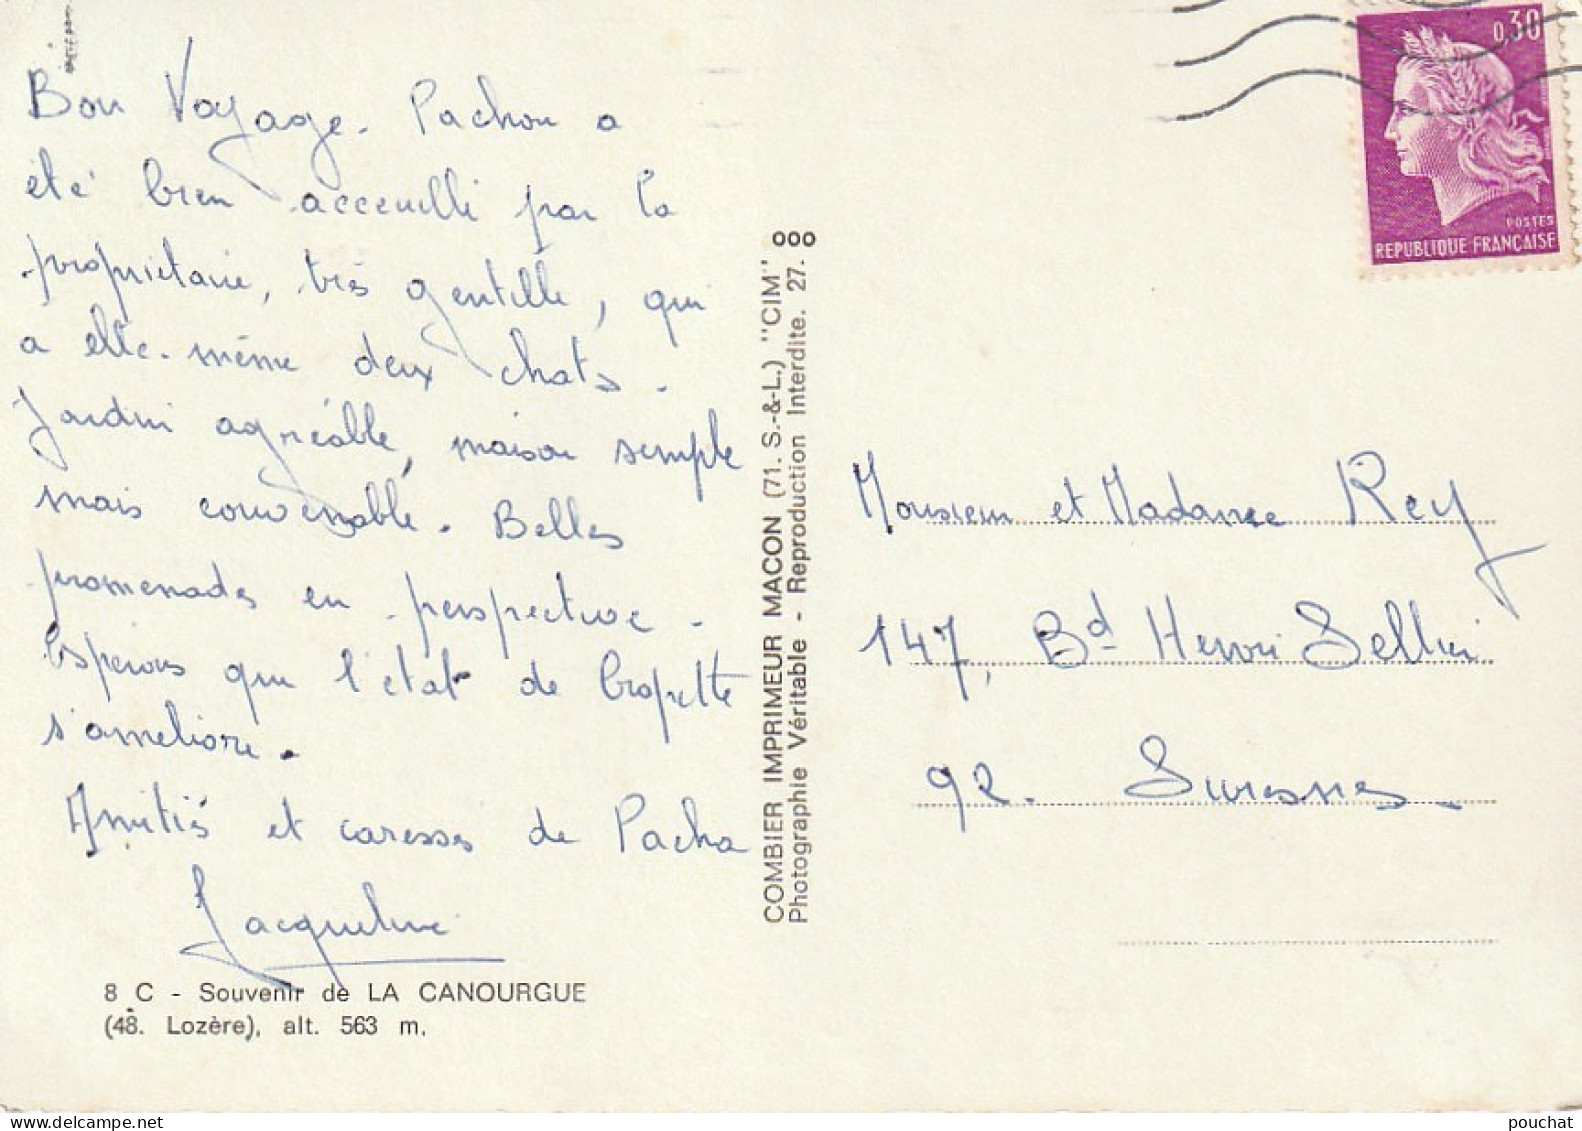 Bon Voyage. Pachou a
été bien accueilli par la
propriétaire, très gentille, qui
a elle-même deux chats.
Jardin agréable, maison simple
mais convenable. Belles
promenades en perspective.
Espérons que l'état de
s'améliore.
Amitiés et caresses de Pacha
Jacqueline
8 C - Souvenir de LA CANOURGUE
(48. Lozère), alt. 563 m.
COMBIER IMPRIMEUR MACON (71. S.-&-L.) "CIM"
Photographie Véritable - Reproduction Interdite. 27. 000
0,30
POSTES
REPUBLIQUE FRANÇAISE
Monsieur et Madame Rey
147, Bd Henri Sellier
92. Suresnes
pouchat